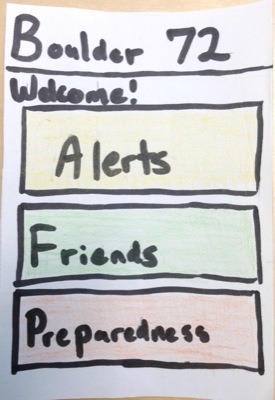 Boulder 72
Welcome!
Alerts
Friends
Preparedness